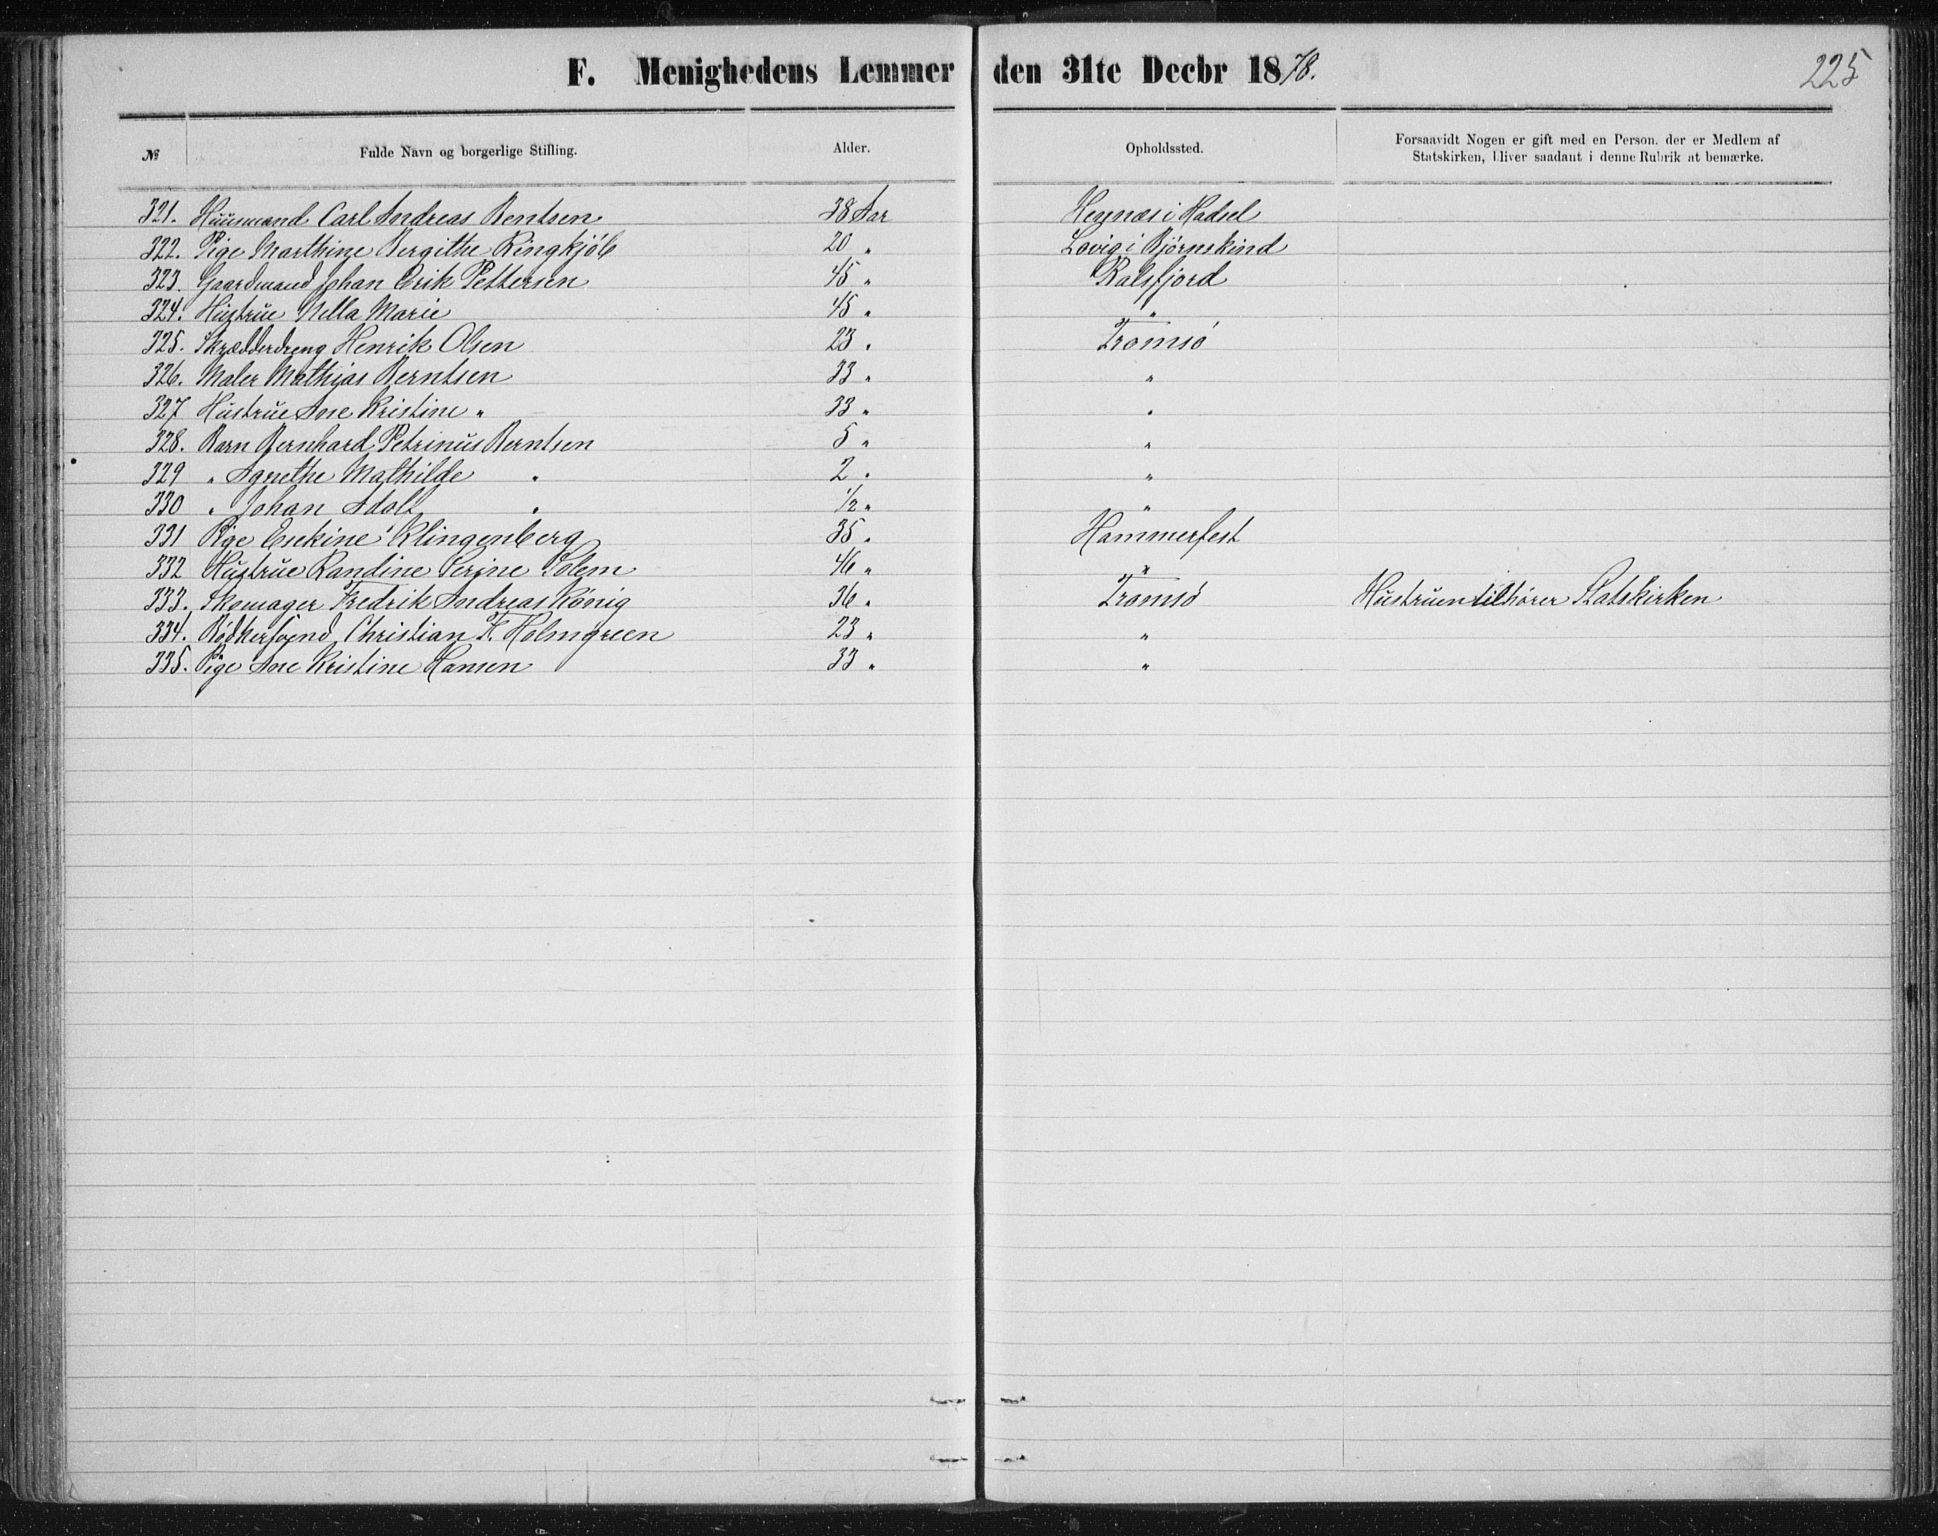 F. Menighedens Lemmer den 31te Decbr 1878. 225
№ Fulde Navn og borgerlige Stilling. Alder. Opholdssted. Forsaavidt Nogen er gift med en Person, der er Medlem af
Statskirken, bliver saadant i denne Rubrik at bemærke.
321. Huusmand Carl Andreas Bentsen 38 Aar Hegnæs i Hadsel
322. Pige Marthine Bergithe Ringkjöb 20 " Lovig i Bjørnskind
323. Gaardmand Johan Erik Pettersen 45 " Balsfjord
324. Hustrue Nella Marie 45 " "
325. Skrædderdreng Henrik Olsen 23 " Tromsø
326. Maler Mathias Berntsen 33 " "
327 Hustrue Ane Kristine " 33 " "
328. Barn Bernhard Petrinus Berntsen 5 " "
329 " Agnethe Mathilde " 2 " "
330 " Johan Adolf " 1/2 " "
331 Pige Klingenberg 35 " Hammerfest
332 Hustrue Randine Serine Solem 46 " "
333. Skomager Fredrik Andreas König 36 " Tromsø Hustruen tilhører Statskirken
334. Bødkersvend Christian F. Holmgreen 23 " "
335. Pige Ane Kristine Hansen 33 " "